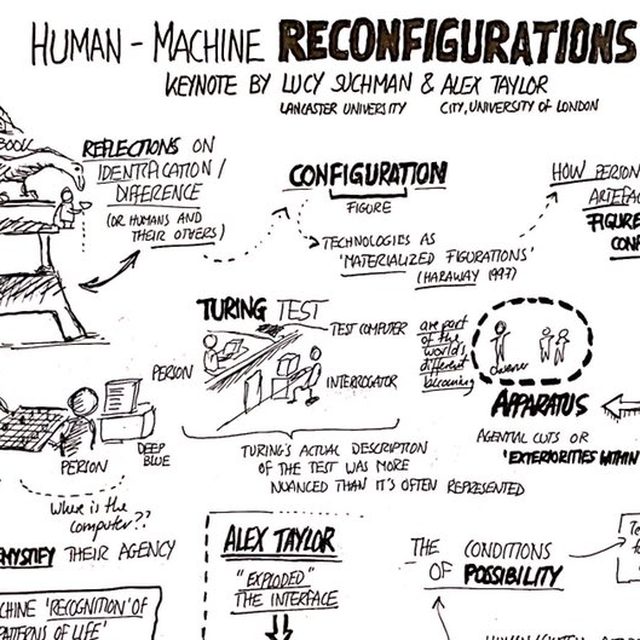 HUMAN - MACHINE RECONFIGURATIONS
KEYNOTE BY LUCY SUCHMAN & ALEX TAYLOR
LANCASTER UNIVERSITY
CITY, UNIVERSITY OF LONDON
REFLECTIONS ON
IDENTIFICATION /
DIFFERENCE
(OR HUMANS AND
THEIR OTHERS)
CONFIGURATION
FIGURE
TECHNOLOGIES AS
'MATERIALIZED FIGURATIONS'
(HARAWAY 1997)
HOW PERSON
ARTEFAC
FIGURE
CON
TURING TEST
TEST COMPUTER
PERSON
INTERROGATOR
TURING'S ACTUAL DESCRIPTION
OF THE TEST WAS MORE
NUANCED THAN IT'S OFTEN REPRESENTED
are part
of the
world's
different
becoming
APPARATUS
AGENTIAL CUTS OR
'EXTERIORITIES WITHIN
DEEP
BLUE
PERSON
Where is the
computer??
MYSTIFY THEIR AGENCY
CHINE 'RECOGNITION' OF
PATTERNS OF LIFE'
ALEX TAYLOR
"EXPLODED"
THE INTERFACE
THE CONDITIONS
OF POSSIBILITY